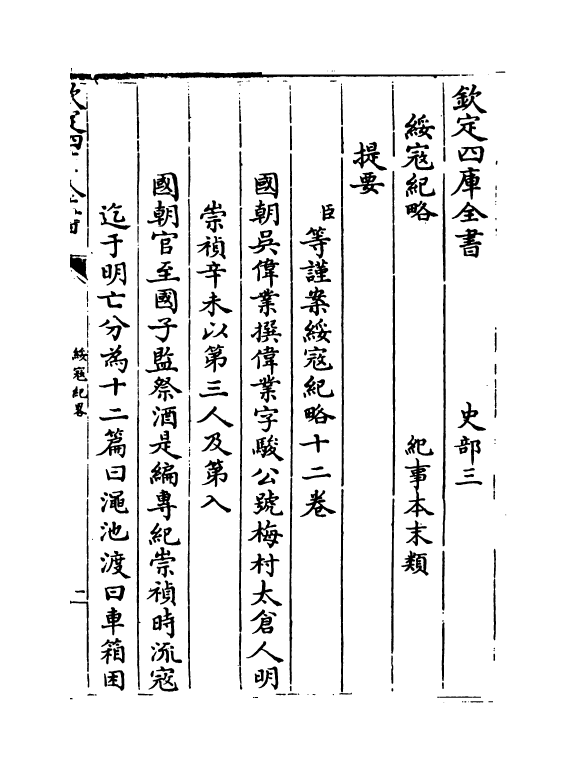 欽定四庫全書 史部三
綏寇紀略 紀事本末類
提要
臣等謹案綏寇紀略十二卷
國朝吳偉業撰偉業字駿公號梅村太倉人明
崇禎辛未以第三人及第入
國朝官至國子監祭酒是編專紀崇禎時流寇
迄于明亡分為十二篇曰澠池渡曰車箱困
綏寇紀畧 二